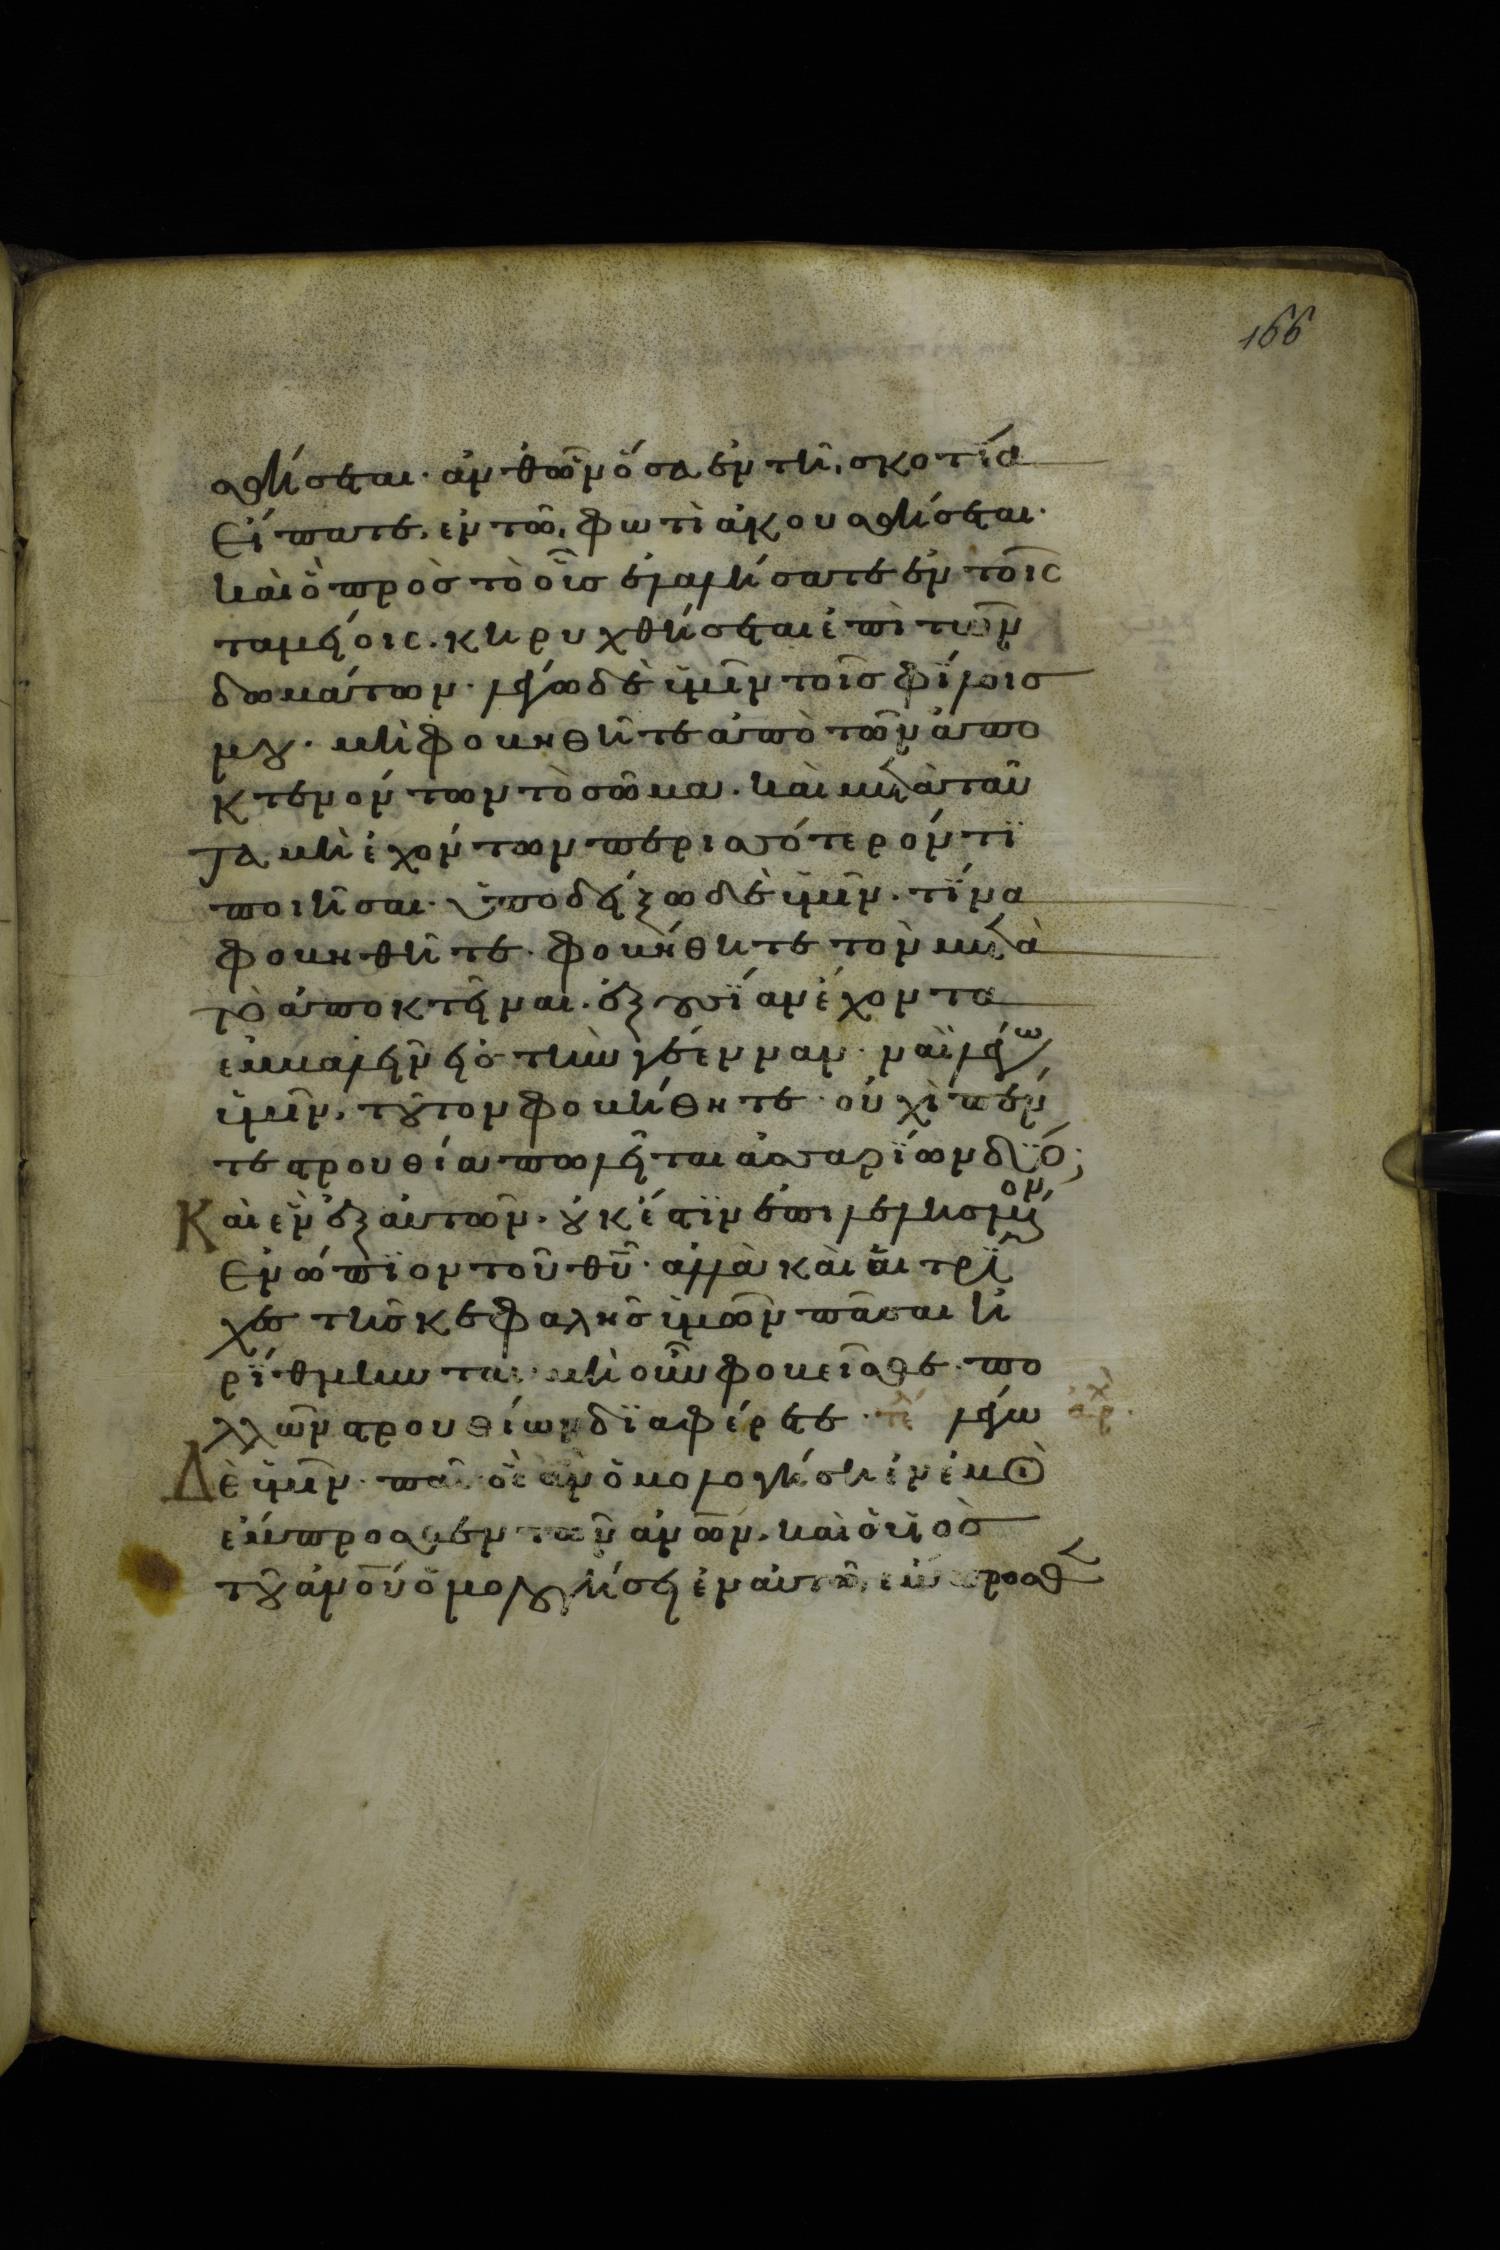 166
σθήσεται· ἀνθῶν ὅσα ἐν τῆι σκοτΐα
εἴπατε, ἐν τῶι φωτὶ ἀκουσθήσεται·
καὶ ὃ πρὸς τὸ οὖς ἐλαλήσατε ἐν τοῖς
ταμείοις. κηρυχθήσεται ἐπὶ τῶν
δωμάτων· λέγω δὲ ὑμῖν τοῖς φΐλοις
μου· μὴ φοβηθῆτε ἀπὸ τῶν ἀπο
κτενόντων τὸ σῶμα. καὶ μετὰ ταῦ
τα μὴ ἐχόντων περισσότερόν τϊ
ποιῆσαι· ὑποδείξω δὲ ὑμῖν. τΐνα
φοβηθῆτε· φοβήθητε τὸν μετὰ
τὸ ἀποκτεῖναι. ἐξουσΐαν ἔχοντα
ἐμβαλεῖν εἰς τὴν γέενναν· ναῒ λέγω
ὑμῖν, τοῦτον φοβήθητε· οὐχὶ πέν
τε στρουθία πωλεῖται ἀσσαρΐων δύο;
Καὶ ἓν ἐξ αὐτῶν. οὐκ ἔστϊν ἐπιλελησμένον
ἐνώπϊον τοῦ θυ̅· ἀλλὰ καὶ αἱ τρΐ
χες τῆς κεφαλῆς ὑμῶν πᾶσαι ἠ
ρΐθμηνται· μὴ οὖν φοβεῖσθε· πο
λλῶν στρουθίων δϊαφέρετε· τε λ λέγω ἀρχ.
Δὲ ὑμῖν· πᾶς ὃς ἂν ὁμολογήση ἐν ἐμοὶ
ἔμπροσθεν τῶν ἀνω̅ν. καὶ ὁ υἱὸς
τοῦ ἀνο̅υ ὁμολογήσει ἐν αὐτῶι ἔμπροσθ